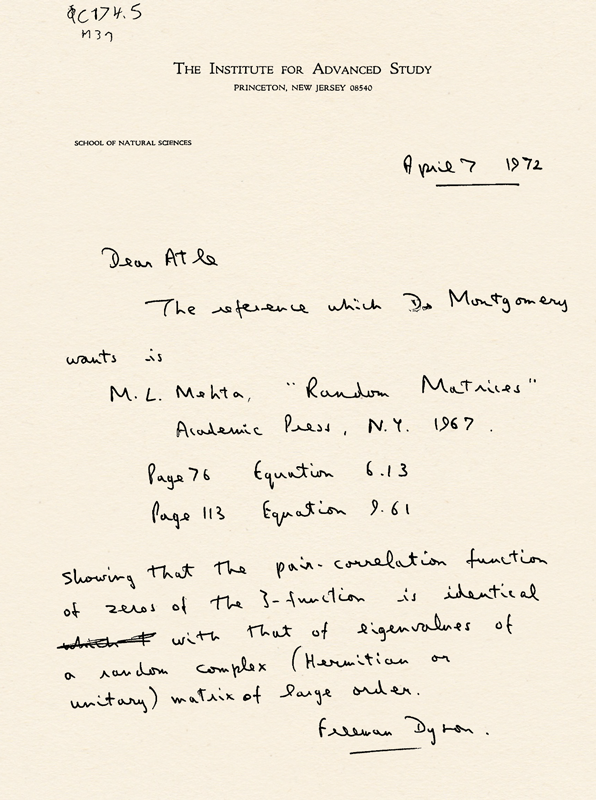 QC174.5
M37
THE INSTITUTE FOR ADVANCED STUDY
PRINCETON, NEW JERSEY 08540
SCHOOL OF NATURAL SCIENCES
April 7 1972
Dear Atle
The reference which Dr Montgomery
wants is
M. L. Mehta, "Random Matrices"
Academic Press, N.Y. 1967.
Page 76 Equation 6.13
Page 113 Equation 9.61
showing that the pair-correlation function
of zeros of the ζ-function is identical
with that of eigenvalues of
a random complex (Hermitian or
unitary) matrix of large order.
Freeman Dyson.